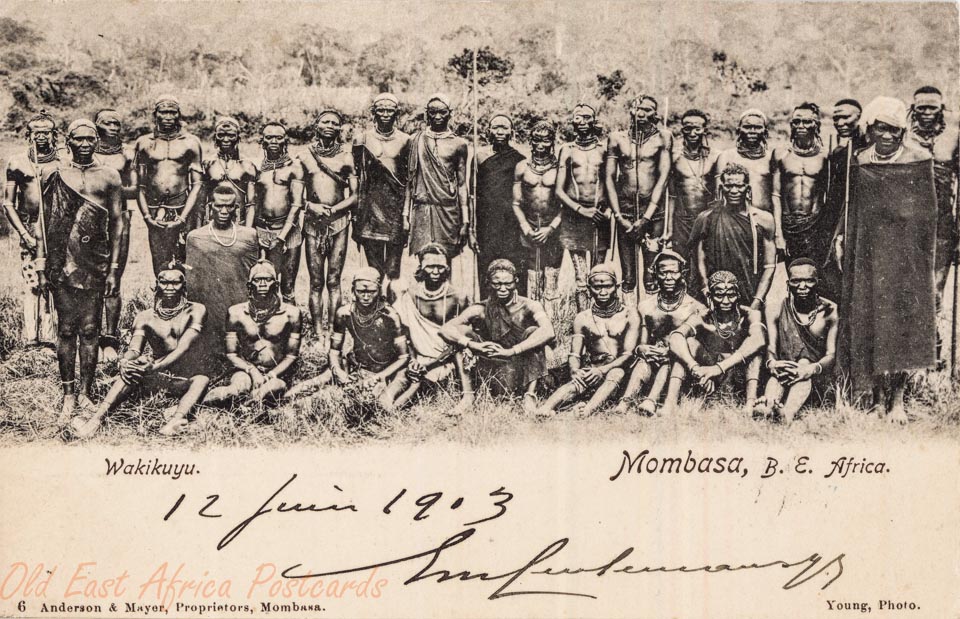 Wakikuyu.
Mombasa, B. E. Africa.
12 juin 1903
Old East Africa Postcards
6 Anderson & Mayer, Proprietors, Mombasa.
Young, Photo.